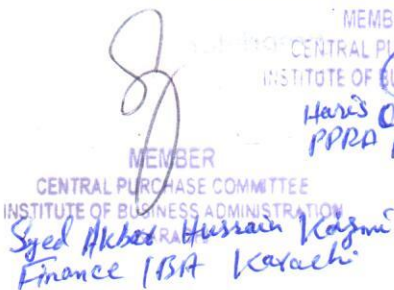 MEMB
CENTRAL PU
INSTITUTE OF BU
Haris
PPRA
MEMBER
CENTRAL PURCHASE COMMITTEE
INSTITUTE OF BUSINESS ADMINISTRATION
KARA
Syed Akbar Hussain Kazmi
Finance IBA Karachi